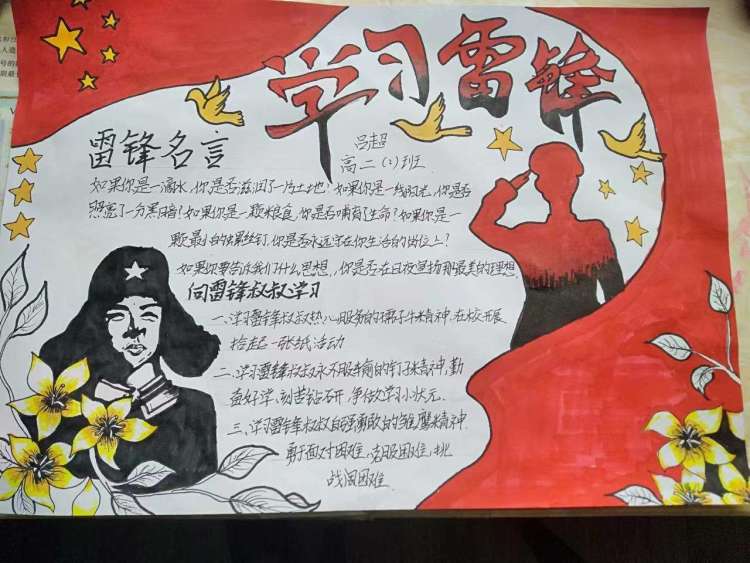 学习雷锋
雷锋名言
吕超
高二(2)班
如果你是一滴水，你是否滋润了一片土地？如果你是一线阳光，你是否
照亮了一分黑暗！如果你是一颗粮食，你是否哺育了生命！如果你是一
颗最小的螺丝钉，你是否永远守在你生活的岗位上？
如果你要告诉我们什么思想，你是否在日夜宣扬那最美的理想
向雷锋叔叔学习
一、学习雷锋叔叔热心服务的孺子牛精神，在校开展
拾起一张纸活动
二、学习雷锋叔叔永不服输的钉子精神，勤
奋好学，刻苦钻研，争做学习小状元.
三、学习雷锋叔叔自强勇敢的雏鹰精神
勇于面对困难，克服困难，挑
战困难.